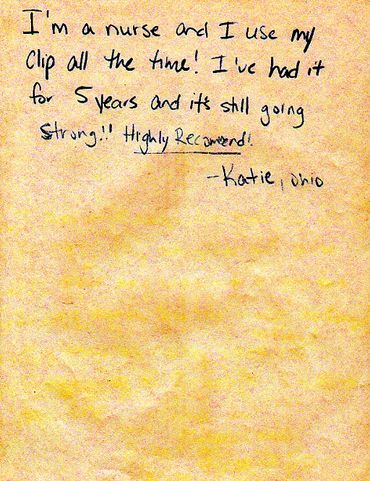 I'm a nurse and I use my
Clip all the time! I've had it
for 5 years and it's still going
Strong!! Highly Recomend!
-Katie, Ohio